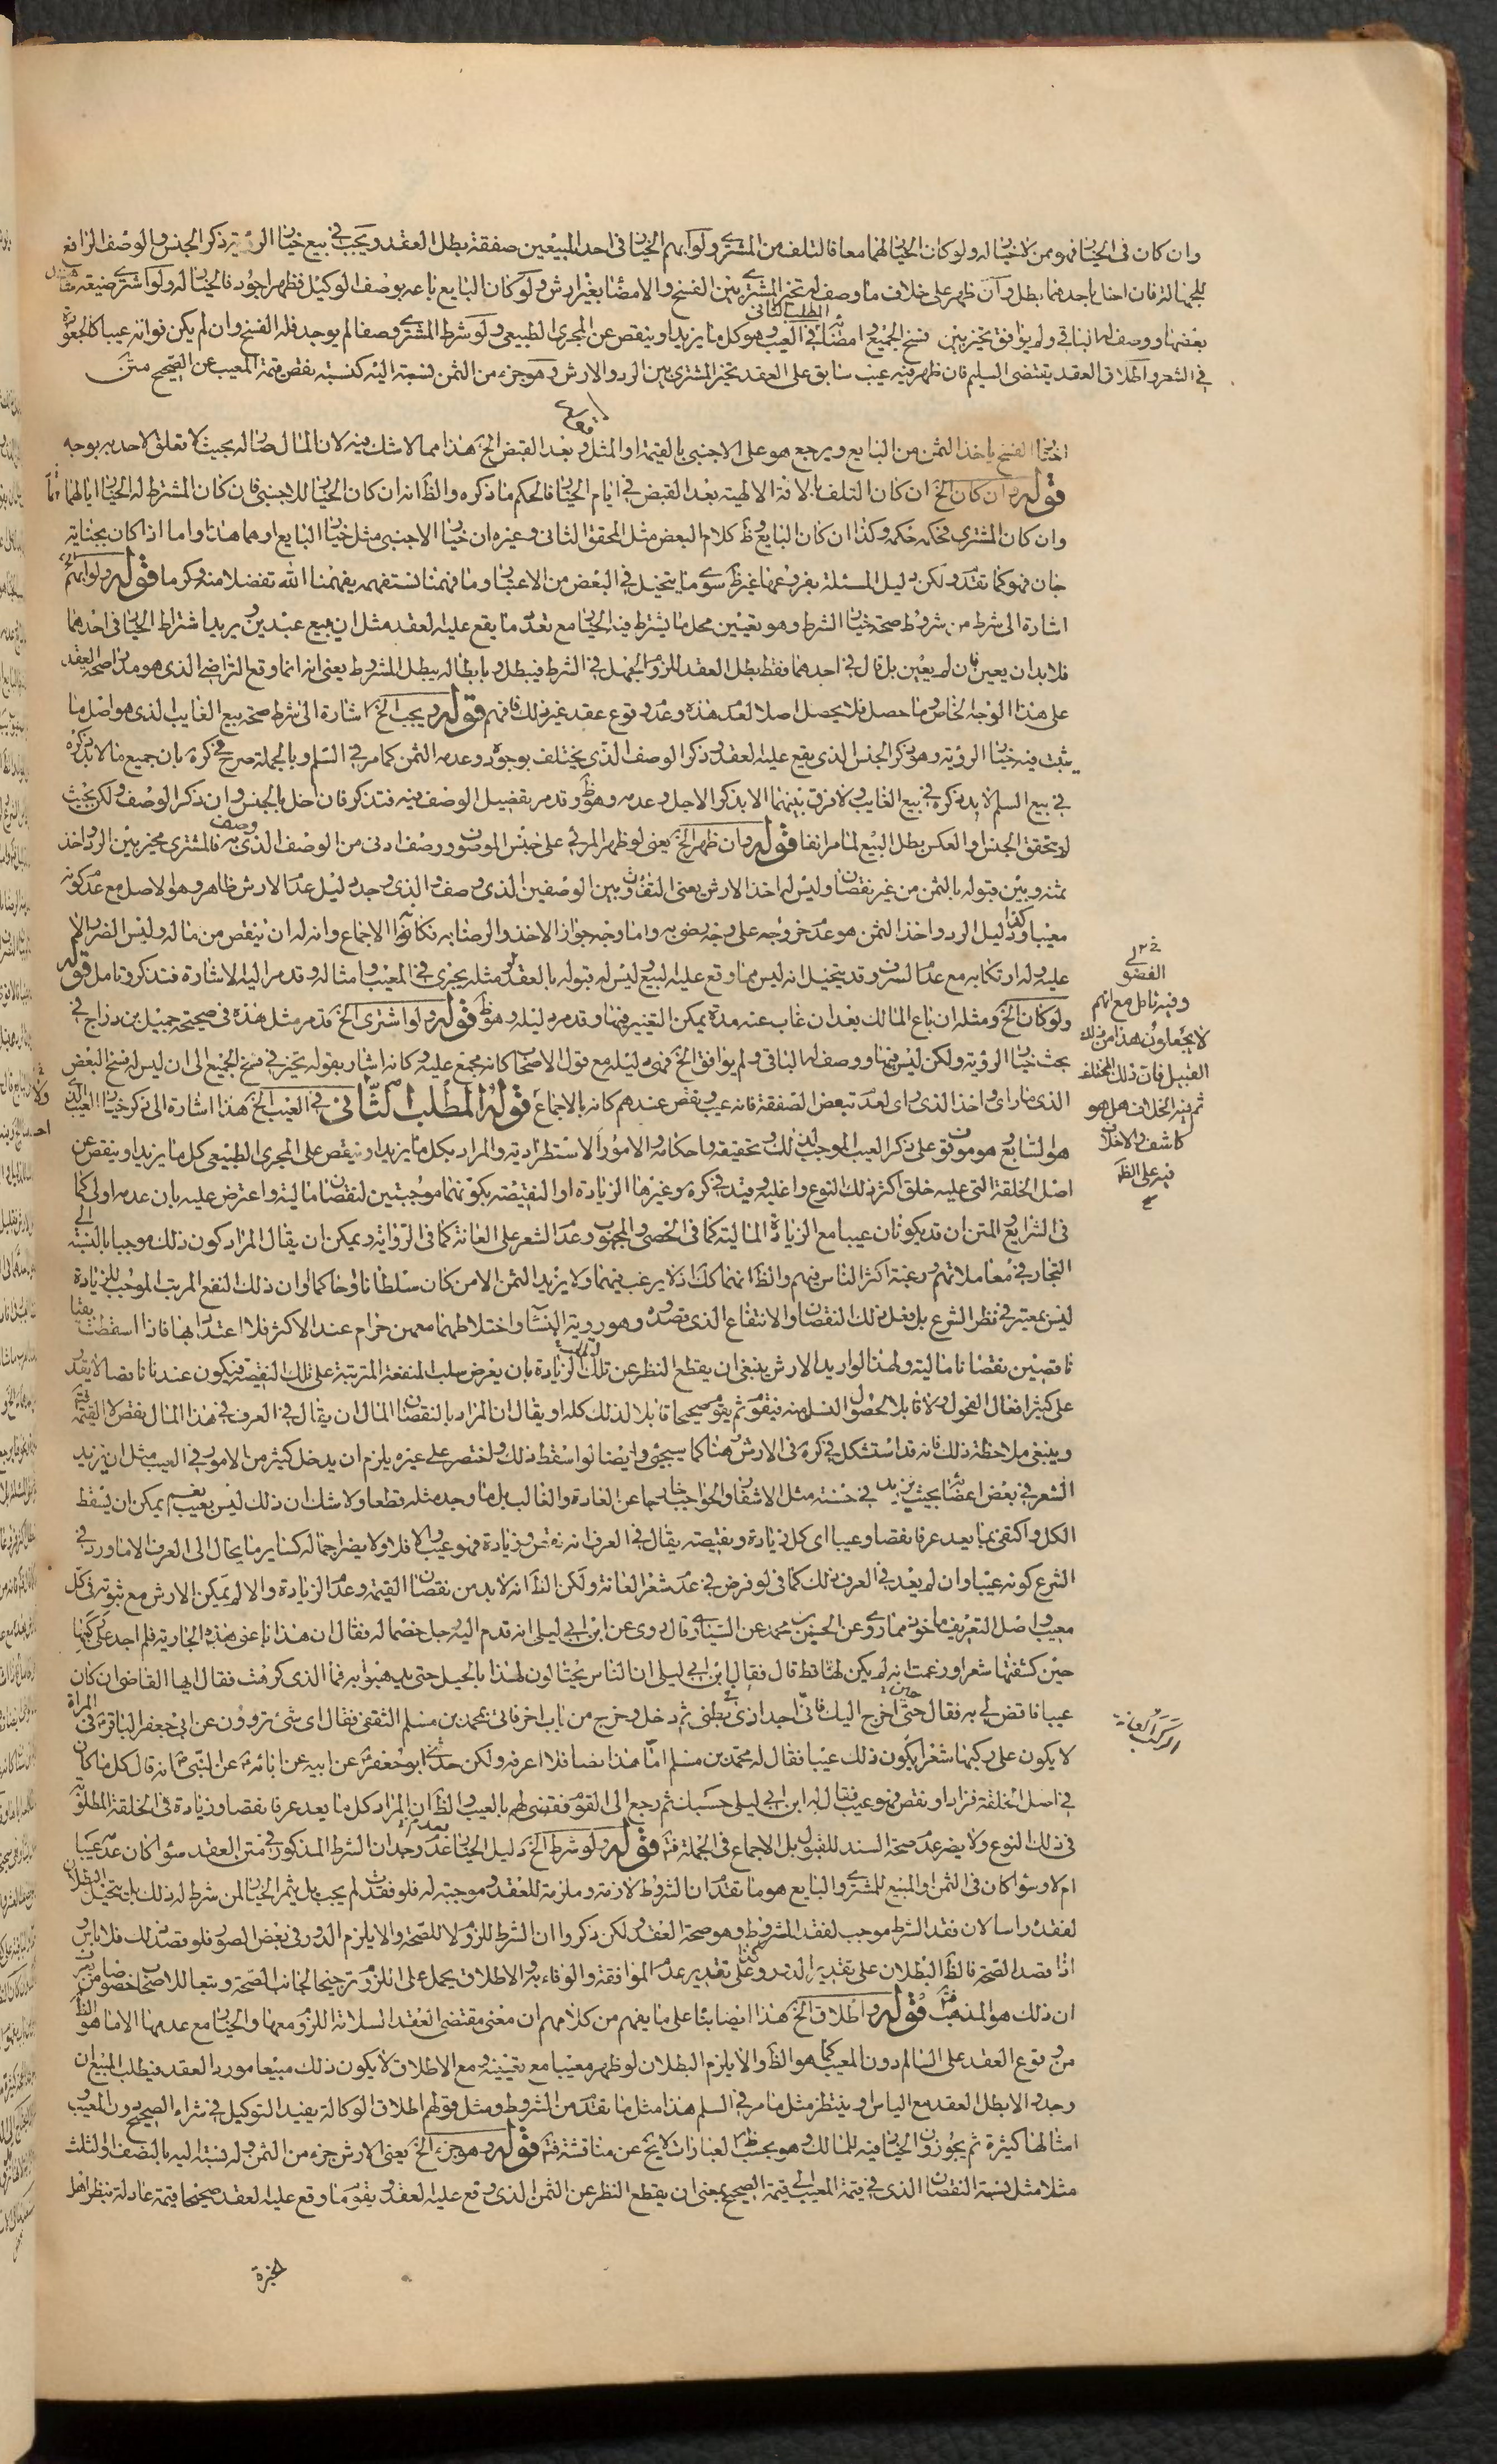 وان كان فى الخيار فهو ممن لا خيار له ولو كان الخيار لهما معا فالتلف من المشترى ولو ابهم الخيار فى احد المبيعين صفقة بطل العقد ويجب فى بيع خيار الرؤية ذكر الجنس والوصف الرافع
للجهالة فان اخل باحدهما بطل وان ظهر على خلاف ما وصف له تخير المشترى بين الفسخ والامضاء بغير ارش ولو كان البايع باعه بوصف الوكيل فظهر اجود فالخيار له ولو اشترى ضيعة شاهد
بعضها ووصف له الباقى ولم يوافق تخير بين فسخ الجميع وامضائه المطلب الثانى فى العيب وهو كل ما يزيد او ينقص عن المجرى الطبيعى ولو شرط المشترى وصفا لم يوجد فله الفسخ وان لم يكن فواته عيبا كالجعودة
فى الشعر واطلاق العقد يقتضى السليم فان ظهر فيه عيب سابق على العقد تخير المشترى بين الرد والارش وهو جزء من الثمن نسبته اليه كنسبة نقص قيمة المعيب عن الصحيح متن
اختار الفسخ ياخذ الثمن من البايع ويرجع هو على الاجنبى بالقيمة او المثل قوله وبعد القبض الخ هذا مما لا شك فيه لان المال صار له بحيث لا تعلق لاحد به بوجه
قوله وان كان الخ ان كان التلف بالافة الالهية بعد القبض فى ايام الخيار فالحكم ما ذكره والظ انه ان كان الخيار للاجنبى فان كان المشترط له الخيار اياهما
وان كان المشترى فحكمه حكمه وكذا ان كان البايع وظ كلام البعض مثل المحقق الثانى وغيره ان خيار الاجنبى مثل خيار البايع او هما هذا واما اذا كان بجناية
جان فهو كما تقدم ولكن دليل المسئلة بفروعها غير ظ سوى ما يتخيل فى البعض من الاعتبار وما فهمنا نستفهمه يفهمنا الله تفضلا منه وكرما قوله ولو ابهم الخ
اشارة الى شرط من شروط صحة خيار الشرط وهو تعيين محل ما يشترط فيه الخيار مع تعدد ما يقع عليه العقد مثل ان يبيع عبدين ويريد اشتراط الخيار فى احدهما
فلا بد ان يعين فان لم يعين بل قال فى احدهما فقط بطل العقد للزوم الجهل فى الشرط فيبطل وبابطاله يبطل المشروط يعنى انه انما وقع التراضى الذى هو مدار صحة العقد
على هذا الوجه الخاص وما حصل فلا يحصل اصلا لعدم هذه وعدم وقوع عقد غير ذلك فافهم قوله ويجب الخ اشارة الى شرط صحة بيع الغايب الذى هو اصل ما
يثبت فيه خيار الرؤية وهو ذكر الجنس الذى يقع عليه العقد وذكر الوصف الذى يختلف بوجوده وعدمه الثمن كما مر فى السلم وبالجملة صرح فى كره بان جميع ما لا بد ذكره
فى بيع السلم لا بد ذكره فى بيع الغايب ولا فرق بينهما الا بذكر الاجل وعدمه وهو ظ وقد مر تفصيل الوصف فيه فتذكر فان اخل بالجنس وان ذكر الوصف ولكن بحيث
لا يتحقق الجنس او العكس بطل البيع لما مر انفا قوله وان ظهر الخ يعنى لو ظهر المرئى على جنس الموصوف ووصف ادنى من الوصف الذى وصف به فالمشترى مخير بين الرد واخذ
ثمنه وبين قبوله بالثمن من غير نقصان وليس له اخذ الارش يعنى التفاوت بين الوصفين الذى وصف والذى وجد دليل عدم الارش ظاهر وهو الاصل مع عدم كونه
معيبا وكذا دليل الرد واخذ الثمن هو عدم خروجه على وجه رضى به واما وجه جواز الاخذ والرضا به فكانه الاجماع وانه له ان ينقص من ماله وليس الضرر الا
عليه وله ارتكابه مع عدم السرف وقد يتخيل انه ليس مما وقع عليه البيع وليس له قبوله بالعقد ومثله يجرى فى المعيب وامثاله وقد مر اليه الاشارة فتذكر وتامل قوله
ولو كان الخ ومثله ان باع المالك بعد ان غاب عنه مدة يمكن التغير فيها وقد مر دليله وهو ظ قوله ولو اشترى الخ قد مر مثل هذه فى صحيحة جميل بن دراج فى
بحث خيار الرؤية ولكن ليس فيها ووصف له الباقى ولم يوافق الخ فهى دليله مع قول الاصحاب كانه مجمع عليه وكانه اشار بقوله تخير فى فسخ الجميع الى ان ليس له فسخ البعض
الذى ما رأى واخذ الذى رأى لعدم تبعض الصفقة فانه عيب ونقض عندهم كانه بالاجماع قوله المطلب الثانى فى العيب الخ هذا اشارة الى ذكر خيار العيب الذى
هو السابع وهو موقوف على ذكر العيب الموجب لذلك وتحقيقه واحكامه والامور الاستطرادية والمراد بكل ما يزيد او ينقص على المجرى الطبيعى كل ما يزيد او ينقص عن
اصل الخلقة التى عليه خلق اكثر ذلك النوع واغلبه وقيد فى كره وغيرها الزيادة او النقيصة بكونهما موجبتين لنقصان المالية واعترض عليه بان عدمه اولى كما
فى الشرايع والمتن ان قد يكونان عيبا مع الزيادة المالية كما فى الخصى والمجبوب وعدم الشعر على العانة كما فى الرواية ويمكن ان يقال المراد كون ذلك موجبا بالنسبة الى
التجار فى معاملاتهم ورغبة اكثر الناس فيهم والظ انهما كك اذ لا يرغب فيهما ولا يزيد الثمن الا من كان سلطانا او حاكما وان ذلك النفع المرتب الموجب للزيادة
ليس بمعتبر فى نظر الشرع بل فعل ذلك النقصان والانتفاع الذى قصد وهو رؤية النساء واختلاطهما معهن حرام عند الاكثر فلا اعتداد بها فاذا اسقطت بقيا
ناقصين نقصانا مالية ولهذا لو اريد الارش ينبغى ان يقطع النظر عن تلك الزيادة بان يفرض سلب المنفعة المترتبة على تلك النقيصة فيكون عندنا ناقصا لا يقدر
على كثير افعال الفحول ولا قابلا لحصول النسل منه فيقوم ثم يقوم صحيحا قابلا لذلك كله او يقال ان المراد بالنقصان المال ان يقال فى العرف فى هذا المال نقص لا القيمة
وينبغى ملاحظة ذلك فانه قد استشكل فى كره فى الارش هنا كما سيجئ وايضا لو اسقط ذلك واختصر على غيره يلزم ان يدخل كثير من الامور فى العيب مثل ان يزيد
الشعر فى بعض اعضائه بحيث يزيد فى حسنه مثل الاشفار والحواجب خارجا عن العادة والغالب بل ما وجد مثله قطعا ولا شك ان ذلك ليس بعيب نعم يمكن ان يسقط
الكل واكتفى بما يعد عرفا نقصا وعيبا اى كل زيادة ونقيصة يقال فى العرف انه نقص وزيادة فهو عيب والا فلا ولا يضر اجماله كساير ما يحال الى العرف الا ما ورد فى
الشرع كونه عيبا وان لم يعد فى العرف ذلك كما فى لو فرض فى عدم شعر العانة ولكن الظ انه لا بد من نقصان القيمة وعدم الزيادة والا لم يمكن الارش مع ثبوته فى كل
معيب واصل التعريف ماخوذ مما روى عن الحسين بن محمد عن السيارى قال روى عن ابن ابى ليلى انه قدم اليه رجل خصما له فقال ان هذا باعنى هذه الجارية فلم اجد على ركبها
حين كشفتها شعرا وزعمت انه لم يكن لها قط قال فقال ابن ابى ليلى ان الناس يحتالون لهذا بالحيل حتى يذهبوا به فما الذى كرهت فقال ايها القاضى ان كان
عيبا فاقض لى به فقال حتى اخرج اليك فانى اجد اذى فى بطنى ثم دخل وخرج من باب اخر فاتى محمد بن مسلم الثقفى فقال اى شئ تروون عن ابى جعفر الباقر فى المراة
لا يكون على ركبها شعر ايكون ذلك عيبا فقال له محمد بن مسلم اما هذا نصا فلا اعرفه ولكن حدثنى ابو جعفر عن ابيه عن ابائه عن النبى انه قال كل ما كان
فى اصل الخلقة فزاد او نقص فهو عيب فقال له ابن ابى ليلى حسبك ثم رجع الى القوم فقضى لهم بالعيب والظ ان المراد كل ما يعد عرفا نقصا وزيادة فى الخلقة المطلوبة
فى ذلك النوع ولا يضر عدم صحة السند للقبول بل الاجماع فى الجملة فت قوله ولو شرط الخ دليل الخيار عند عدم وجدان الشرط المذكور فى متن العقد سواء كان عدمه عيبا
ام لا وسواء كان فى الثمن او المبيع للمشترى والبايع هو ما تقدم ان الشروط لازمة وملزمة للعقد وموجبته له فلو فقدت لم يجب بل يثمر الخيار لمن شرط له ذلك بل يتخيل البطلان
لفقده راسا لان فقد الشرط موجب لفقد المشروط وهو صحة العقد ولكن ذكروا ان الشرط للزوم لا للصحة والا يلزم الدور فى بعض الصور فلو قصد ذلك فلا باس
اذا قصد الصحة فالظ البطلان على تقدير الدور وكذا على تقدير عدم الموافقة والوفاء به والاطلاق يحمل على اللزوم ترجيحا لجانب الصحة وتبعا للاصحاب خصوصا
ان ذلك هو المذهب فت قوله واطلاق الخ هذا ايضا بناء على ما يفهم من كلامهم ان معنى مقتضى العقد السلامة اللزوم معها والخيار مع عدمها الا ما هو الظ
من وقوع العقد على السالم دون المعيب كما هو الظ والا يلزم البطلان لو ظهر معيبا مع تعيينه ومع الاطلاق لا يكون ذلك مبيعا مورد العقد فيطلب المبيع ان
وجد والا بطل العقد مع الياس او ينتظر مثل ما مر فى السلم هذا مثل ما تقدم من الشروط ومثل قولهم اطلاق الوكالة يفيد التوكيل فى شراء الصحيح دون المعيب و
امثالها كثيرة ثم يجوزون الخيار فيه للمالك وهو بحسب ظ العبارات لا يخ عن مناقشة فت قوله وهو جزء الخ يعنى الارش جزء من الثمن وله نسبة اليه بالنصف او الثلث
مثلا مثل نسبة النقصان الذى فى قيمة المعيب الى قيمة الصحيح بمعنى ان يقطع النظر عن الثمن الذى وقع عليه العقد ويقوم ما وقع عليه العقد صحيحا قيمة عادلة بنظر اهل
الخبرة
الفضو
وفيه تامل مع انهم
لا يجعلون هذا من ذلك
القبيل فان ذلك المختلف
ثم فيه الخلاف هل هو
كاشف والاخلاف
فيه على الظ
الركب العانة